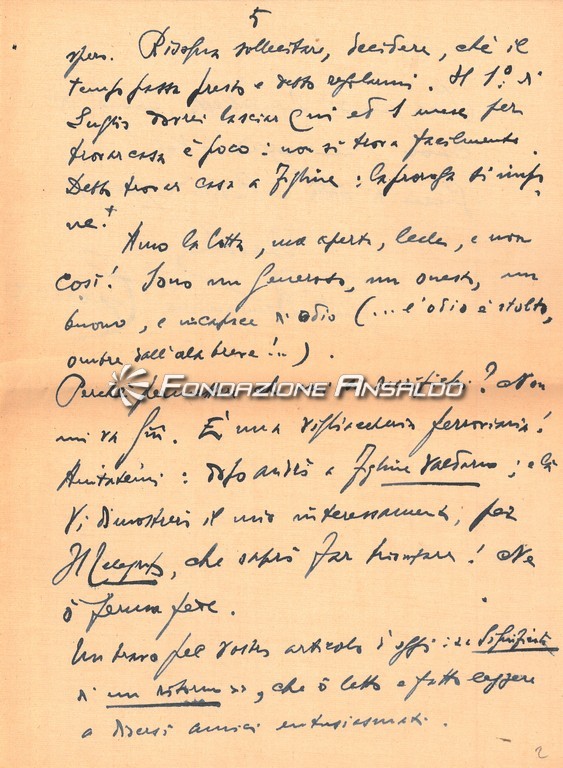 5
spero. Bisogna sollecitare, decidere, chè il
tempo passa presto e debbo regolarmi. Il 1º di
Luglio dovrei lasciar Qui ed 1 mese per
trovar casa è poco: non si trova facilmente.
Debbo trovar casa a Figline: la proroga si impo-
ne!
Amo la lotta, ma aperta, leale, e non
così! Sono un generoso, un onesto, un
buono, e incapace di odio (... e l'odio è stolto,
ombre dall'ala breve!...).
Perchè
? Non
mi va giù. È una vigliaccheria ferroviaria!
Aiutatemi: dopo andrò a Figline Valdarno; e là
Vi dimostrerò il mio interessamento, per
Il Telegrafo, che saprò far trionfare! Ne
ò ferma fede.
Un bravo pel Vostro articolo d'oggi: «Significato
di un ritorno», che ò letto e fatto leggere
a diversi amici entusiasmati.
2
FONDAZIONE ANSALDO